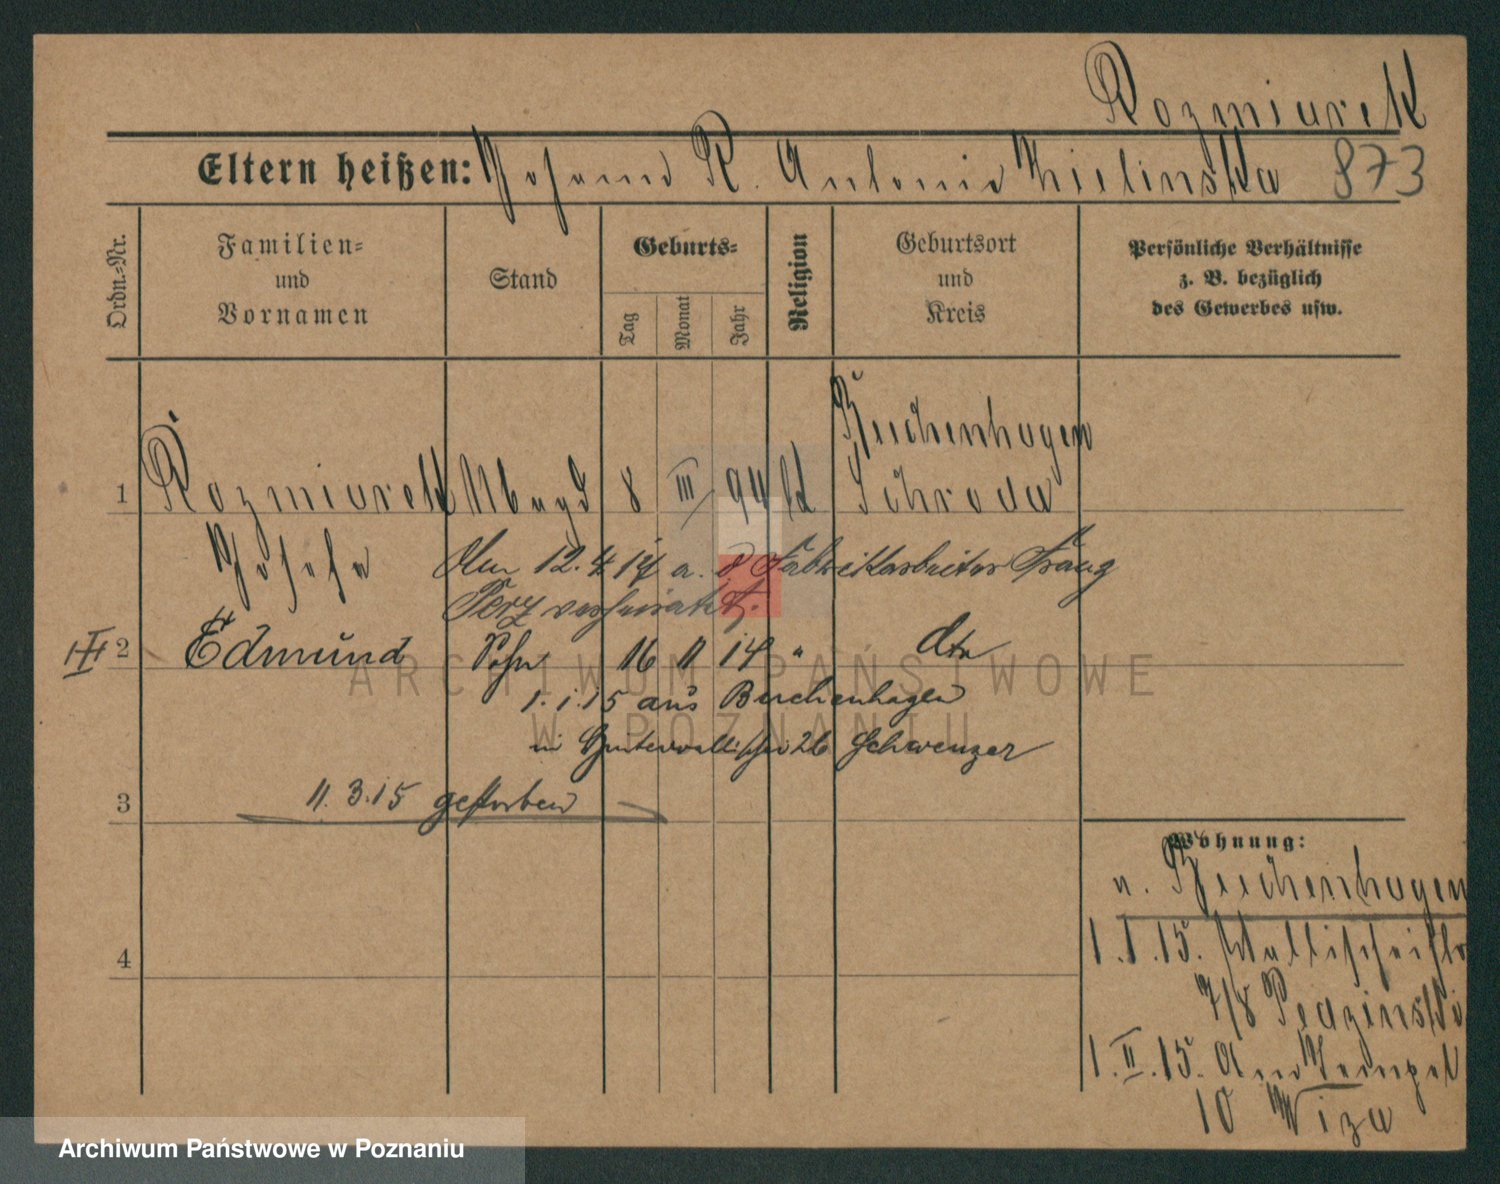 Rozmiarek
Eltern heißen: Johann R. Antonie Zielinska 873
Ordn.-Nr.
Familien- und Vornamen
Stand
Geburts-
Tag
Monat
Jahr
Religion
Geburtsort und Kreis
Persönliche Verhältnisse z. B. bezüglich des Gewerbes usw.
Buchenhagen
1 Rozmiarek Magd 8 III 94 kl Schroda
Josefa
Am 12. 4. 14 a. d Fabrikarbeiter Franz
Perz verheiratet.
2 Edmund Sohn 16 11 14 " dto
1.1.15 aus Buchenhagen
in Hinterwallischei 26 Schwenzer
3 11.3.15 gestorben
4
Wohnung:
n. Buchenhagen
1.1.15. Wallischeistr
7/8
1.II.15. Am Tempel
10 Wiza
ARCHIWUM PAŃSTWOWE
W POZNANIU
Archiwum Państwowe w Poznaniu